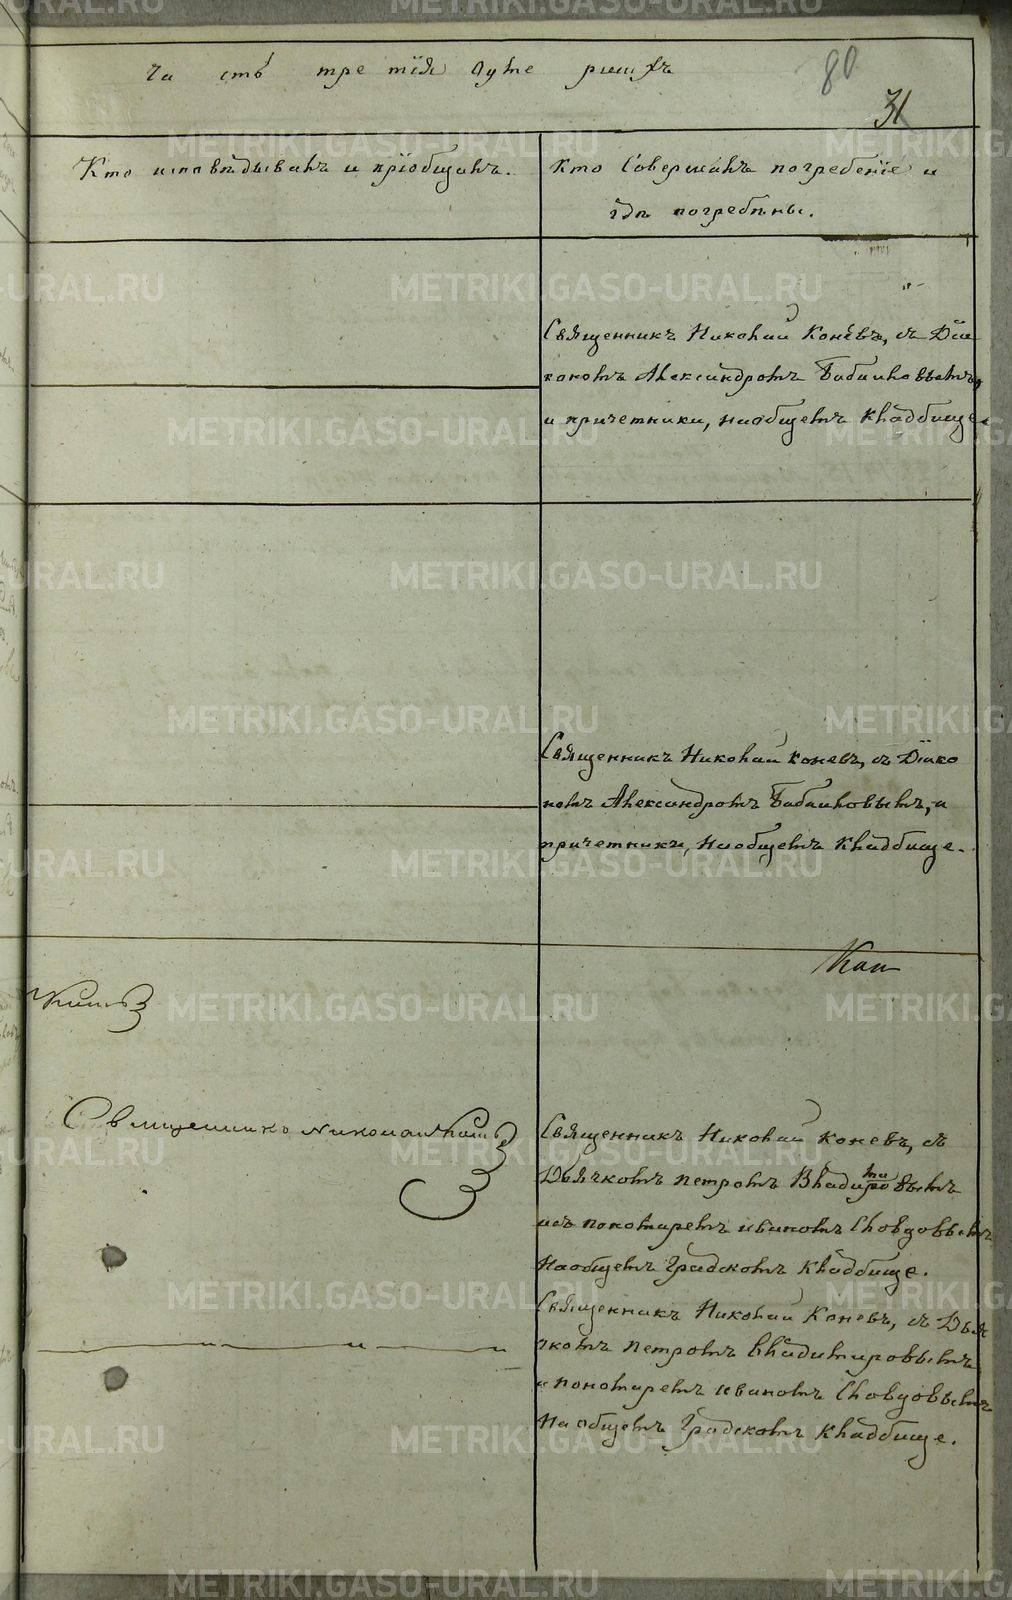 Часть третїя о умершихъ
80
31
Кто исповѣдывалъ и прїобщалъ.
Кто Совершалъ погребенїе и
гдѣ погребены.
Священникъ Николай Коневъ, съ Дїа
кономъ Александромъ Бабаиловымъ,
и причетники, на общемъ кладбище.
Священникъ Николай Коневъ, съ Дїако
номъ Александромъ Бабаиловымъ, и
причетники, на общемъ кладбище.
Священникъ Николай Коневъ
Священникъ Николай Коневъ, съ
Дьячкомъ Петромъ Владимировымъ
и съ пономаремъ Иваномъ Словцовымъ
На общемъ Градскомъ кладбище.
Священникъ Николай Коневъ, съ Дья
чкомъ Петромъ Владимировымъ
и пономаремъ Иваномъ Словцовымъ
На общемъ Градскомъ кладбище.
METRIKI.GASO-URAL.RU